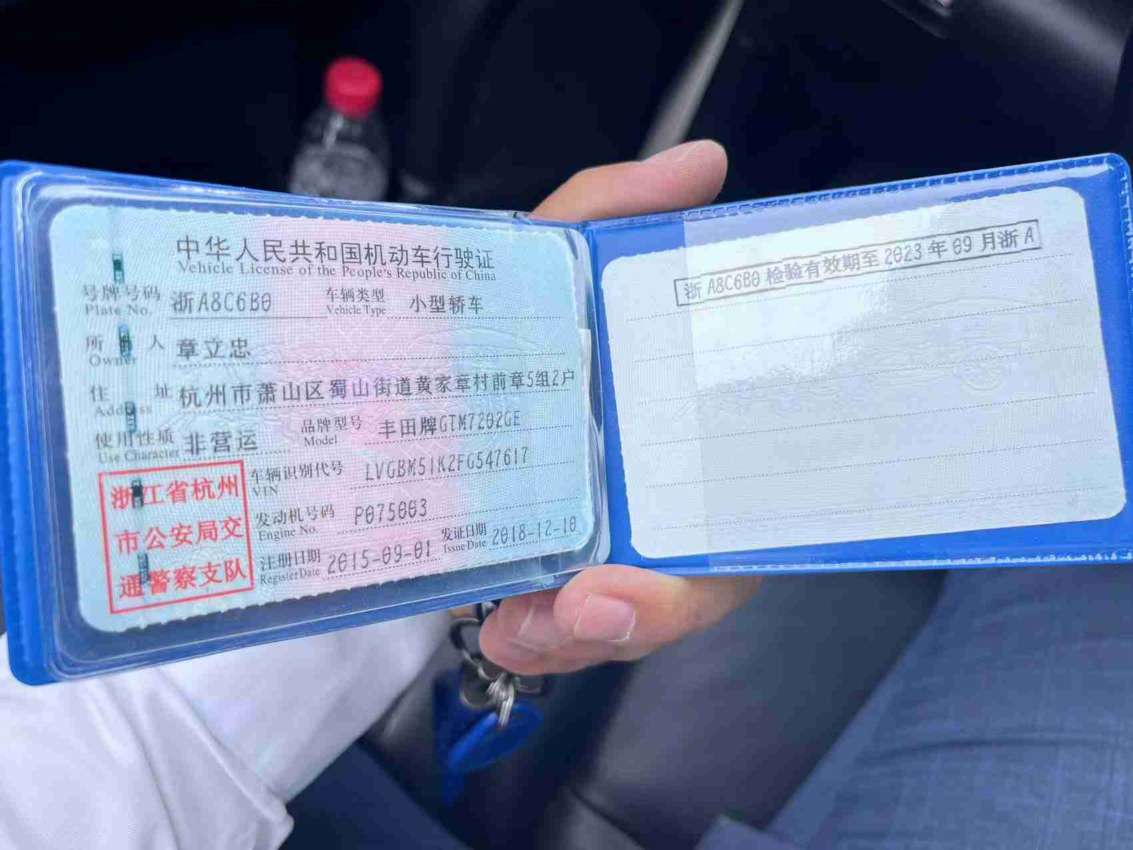 中华人民共和国机动车行驶证
Vehicle License of the People's Republic of China
号牌号码 浙A8C6B0 车辆类型 小型轿车
Plate No. Vehicle Type
所有人 章立忠
Owner
住址 杭州市萧山区蜀山街道黄家章村前章5组2户
Address
使用性质 非营运 品牌型号 丰田牌GTM7202GE
Use Character Model
浙江省杭州
市公安局交
通警察支队
车辆识别代号 LVGBM51K2FG547617
VIN
发动机号码 P075003
Engine No.
注册日期 2015-09-01 发证日期 2018-12-10
Register Date Issue Date
浙A8C6B0检验有效期至2023年09月浙A